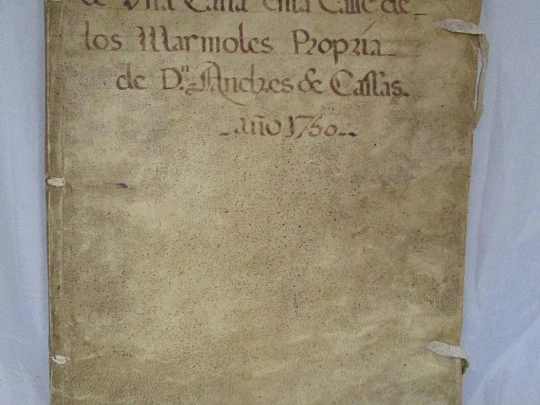 de Vna Cassa en la Calle de
los Marmoles Propria
de Dn. Andres de Cassas.
año 1760